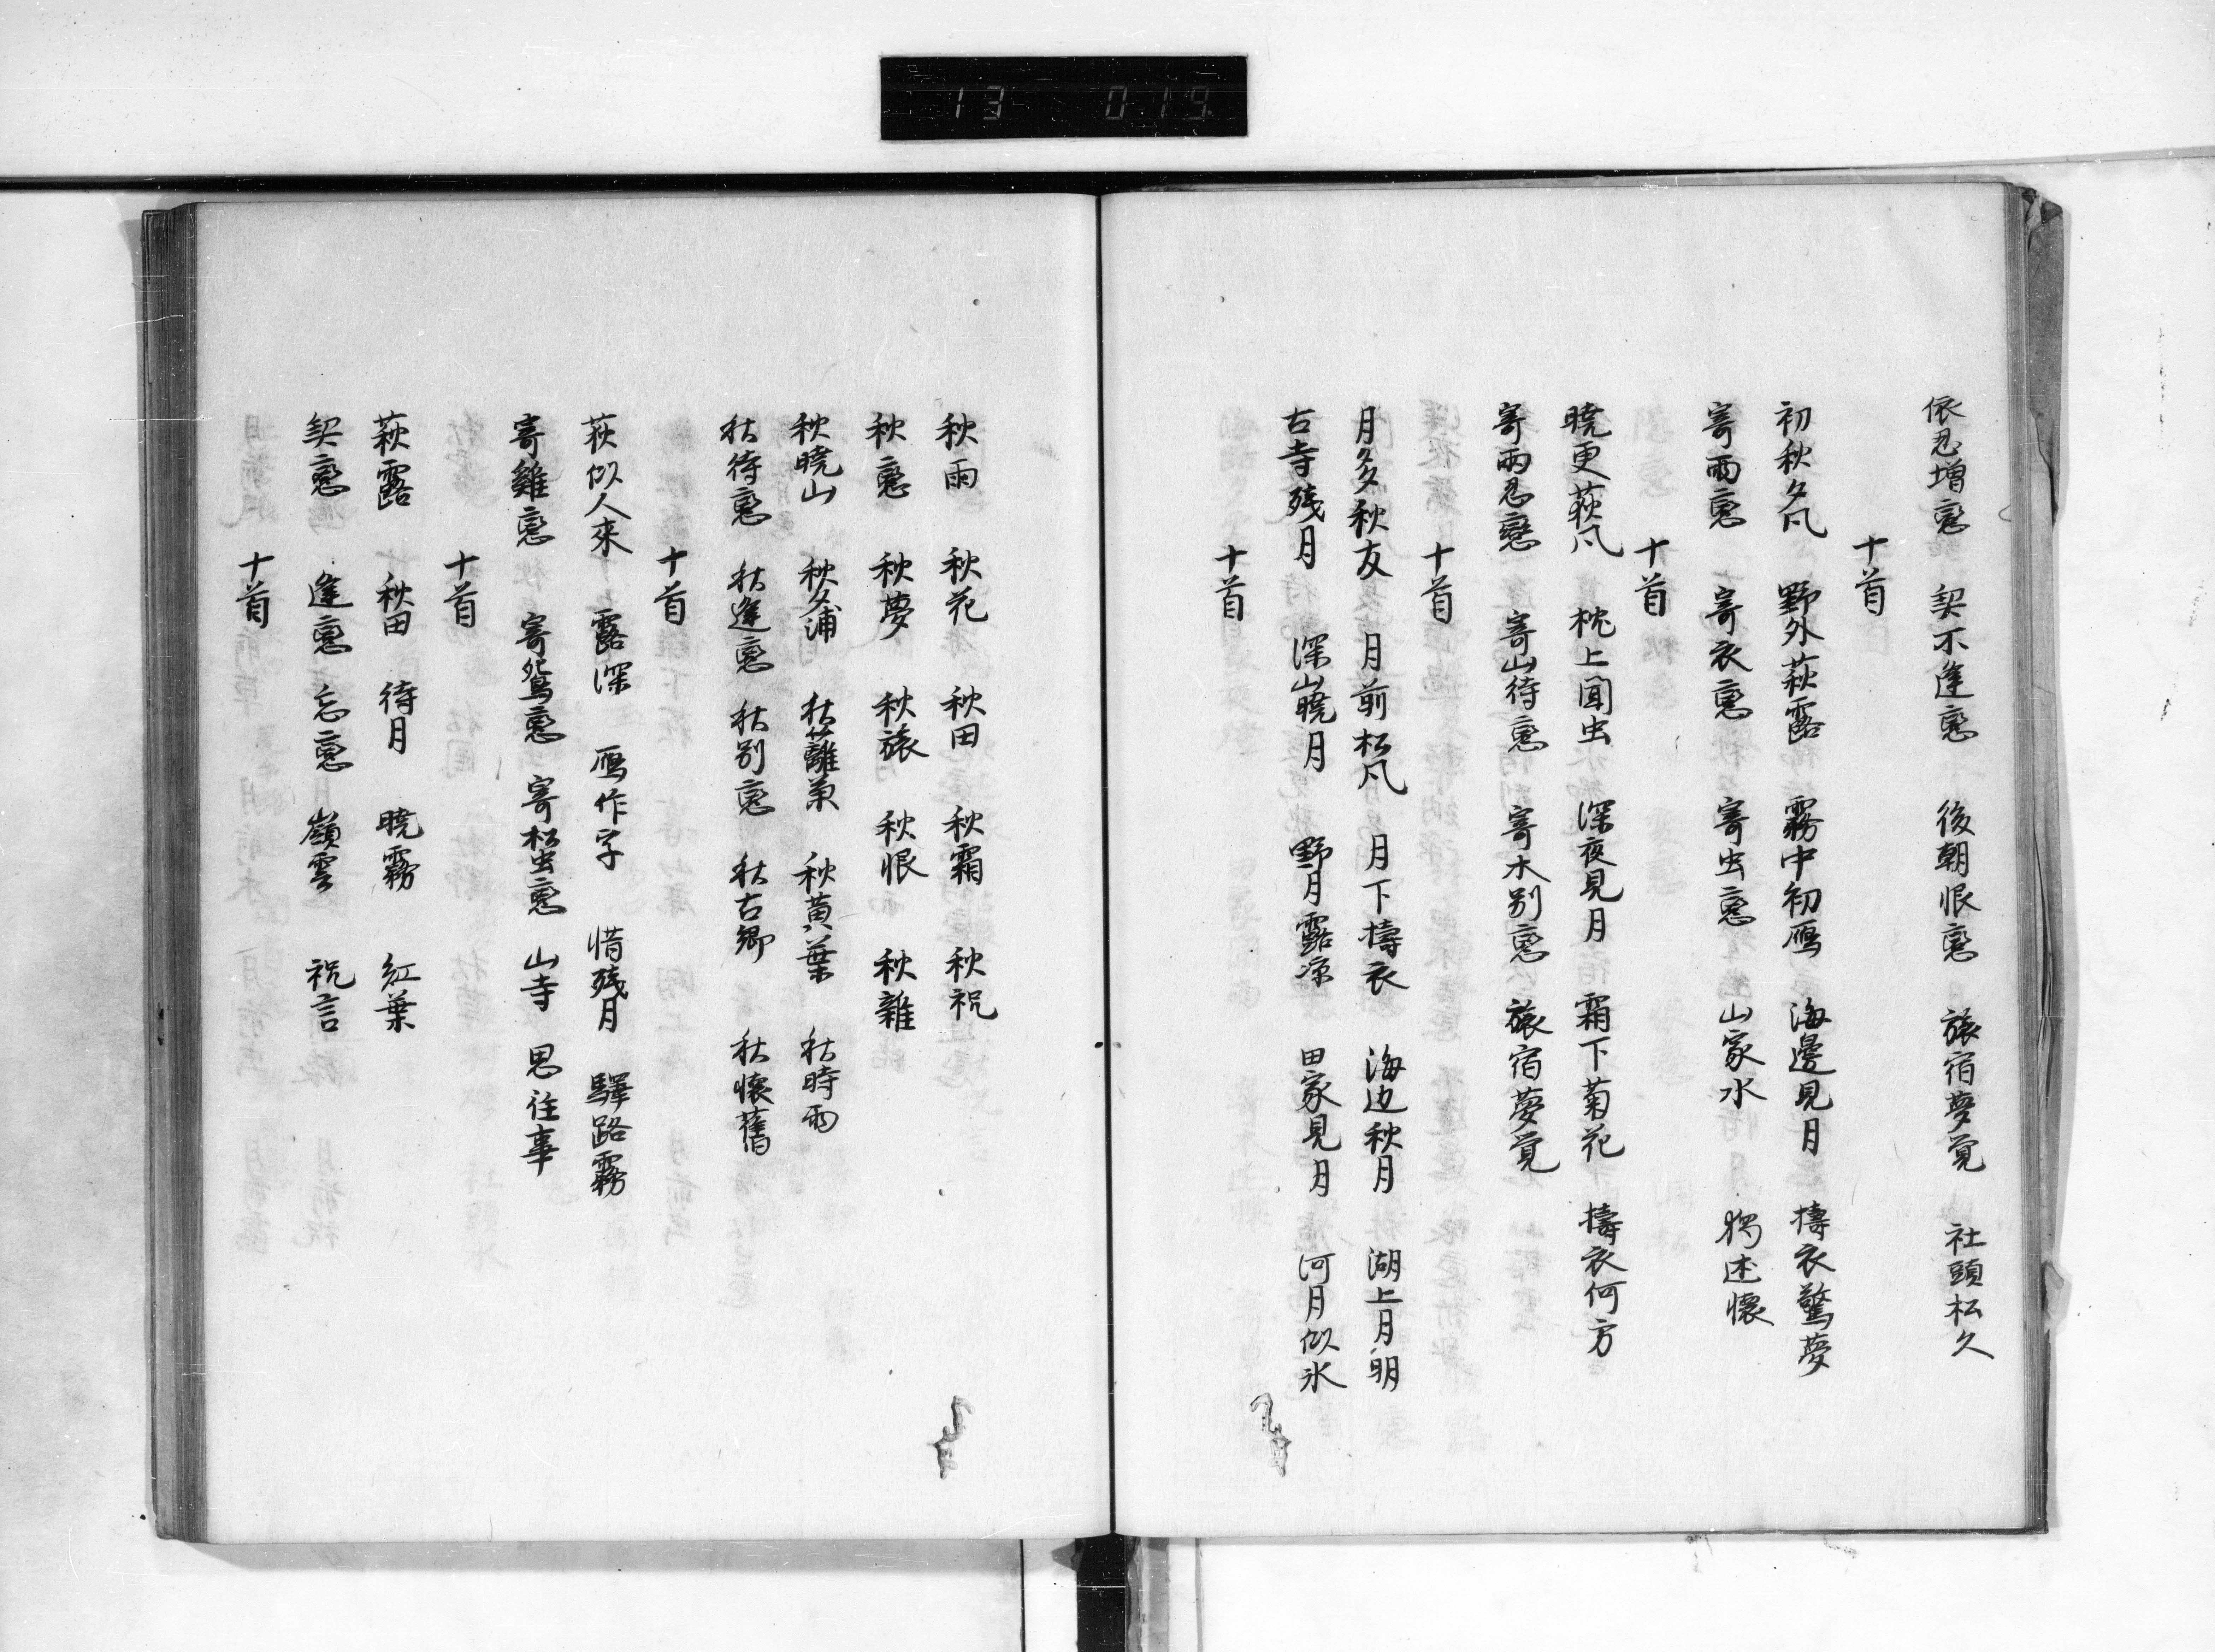 13 019
依忍増戀 契不逢戀 後朝恨戀 旅宿夢覚 社頭松久
十首
初秋夕風 野外萩露 霧中初鴈 海邊見月 擣衣驚夢
寄雨戀 寄衣戀 寄虫戀 山家水 獨述懐
十首
暁更荻風 枕上聞虫 深夜見月 霜下菊花 擣衣何方
寄雨忍戀 寄山待戀 寄木別戀 旅宿夢覚
十首
月多秋友 月前松風 月下擣衣 海辺秋月 湖上月明
古寺残月 深山暁月 野月露凉 田家見月 河月似氷
十首
秋雨 秋花 秋田 秋霜 秋祝
秋戀 秋夢 秋旅 秋恨 秋雑
秋暁山 秋夕浦 秋籬菊 秋黄葉 秋時雨
秋待戀 秋逢戀 秋別戀 秋古郷 秋懐舊
十首
荻似人來 露深 鴈作字 惜残月 驛路霧
寄雞戀 寄鴛戀 寄松虫戀 山寺 思往事
十首
萩露 秋田 待月 暁霧 紅葉
契戀 逢戀 忘戀 嶺雲 祝言
十首